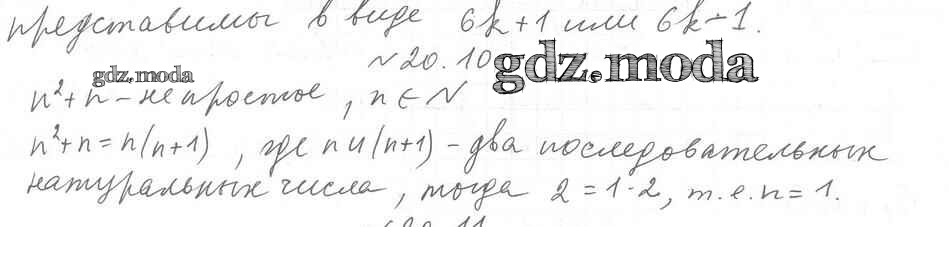 представимы в виде 6k+1 или 6k-1.
№20.10 gdz.moda
gdz.moda
n²+n - не простое, n ∈ N
n²+n = n(n+1), где n и (n+1) - два последовательных
натуральных числа, тогда 2 = 1·2, т.е. n = 1.